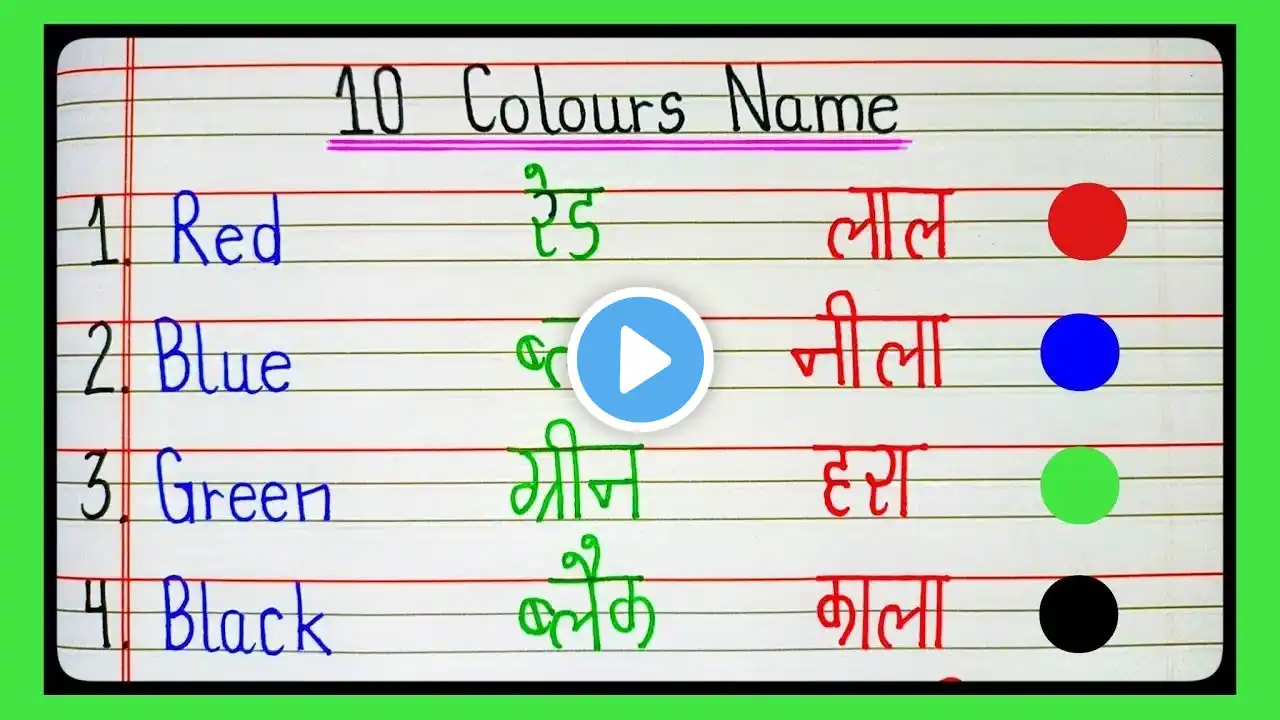 10 Colours Name
1. Red रेड लाल
2. Blue नीला
3. Green ग्रीन हरा
4. Black ब्लैक काला